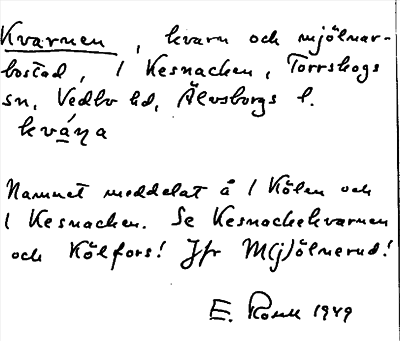 Kvarnen, kvarn och mjölnar-
bostad, 1 Kesnacken, Torrskogs
sn, Vedbo hd, Älvsborgs l.
kvána
Namnet meddelat å 1 Kölen och
1 Kesnacken. Se Kesnackekvarnen
och Kölfors! Jfr M(j)ölnerud!
E. 1949